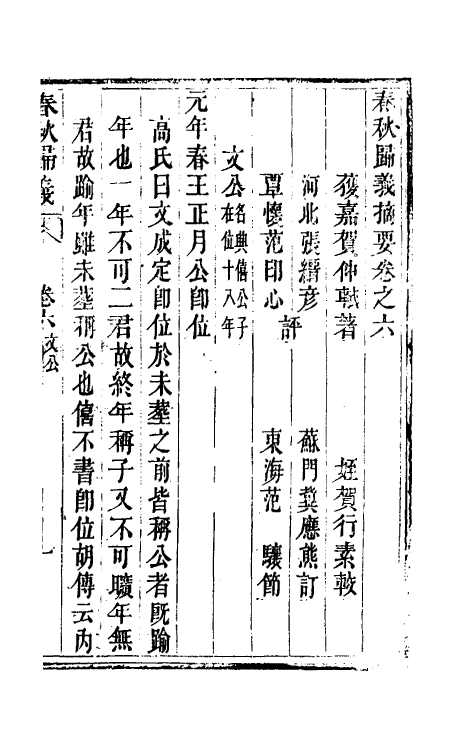 春秋歸義摘要卷之六
獲嘉賀仲軾著　姪賀行素較
河北張縉彥　蘇門龔應熊訂
覃懷范印心　評　東海范　驤節
文公名興僖公子在位十八年
元年春王正月公卽位
高氏曰文成定卽位於未塟之前皆稱公者旣踰
年也一年不可二君故終年稱子又不可曠年無
君故踰年雖未塟稱公也僖不書卽位胡傳云內
春秋歸義　卷六文公